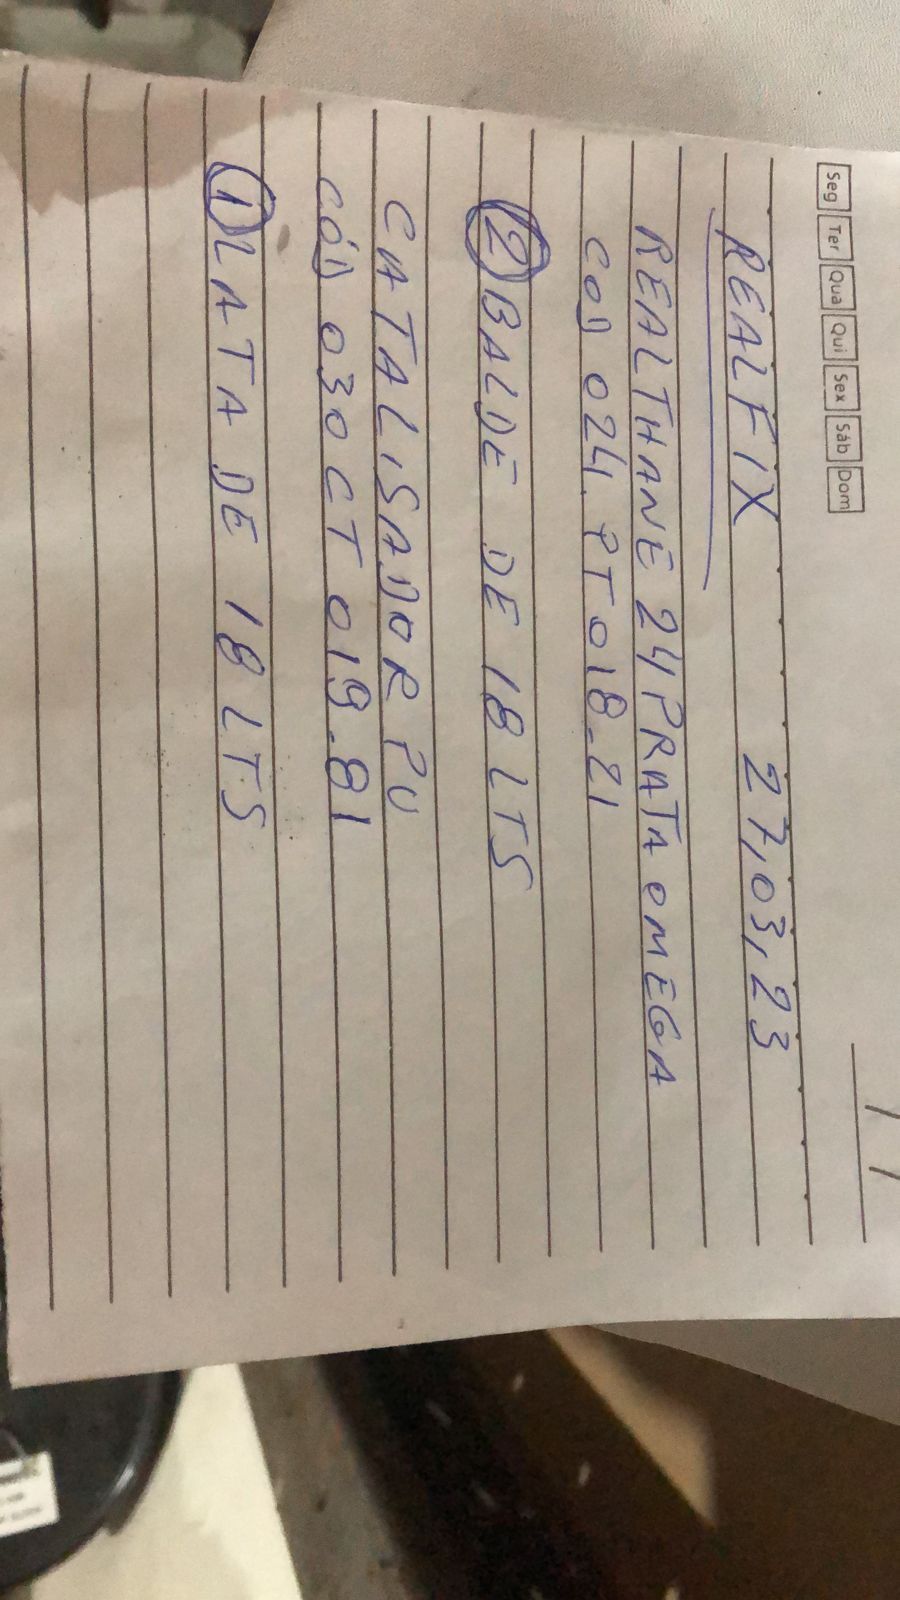 Seg Ter Qua Qui Sex Sáb Dom
REALFIX 27,03,23
REALTHANE 24 PRATA OMEGA
COD 024.PT018-21
2 BALDE DE 18 LTS
CATALISADOR PU
CÓD 030CT019-81
1 LATA DE 18 LTS